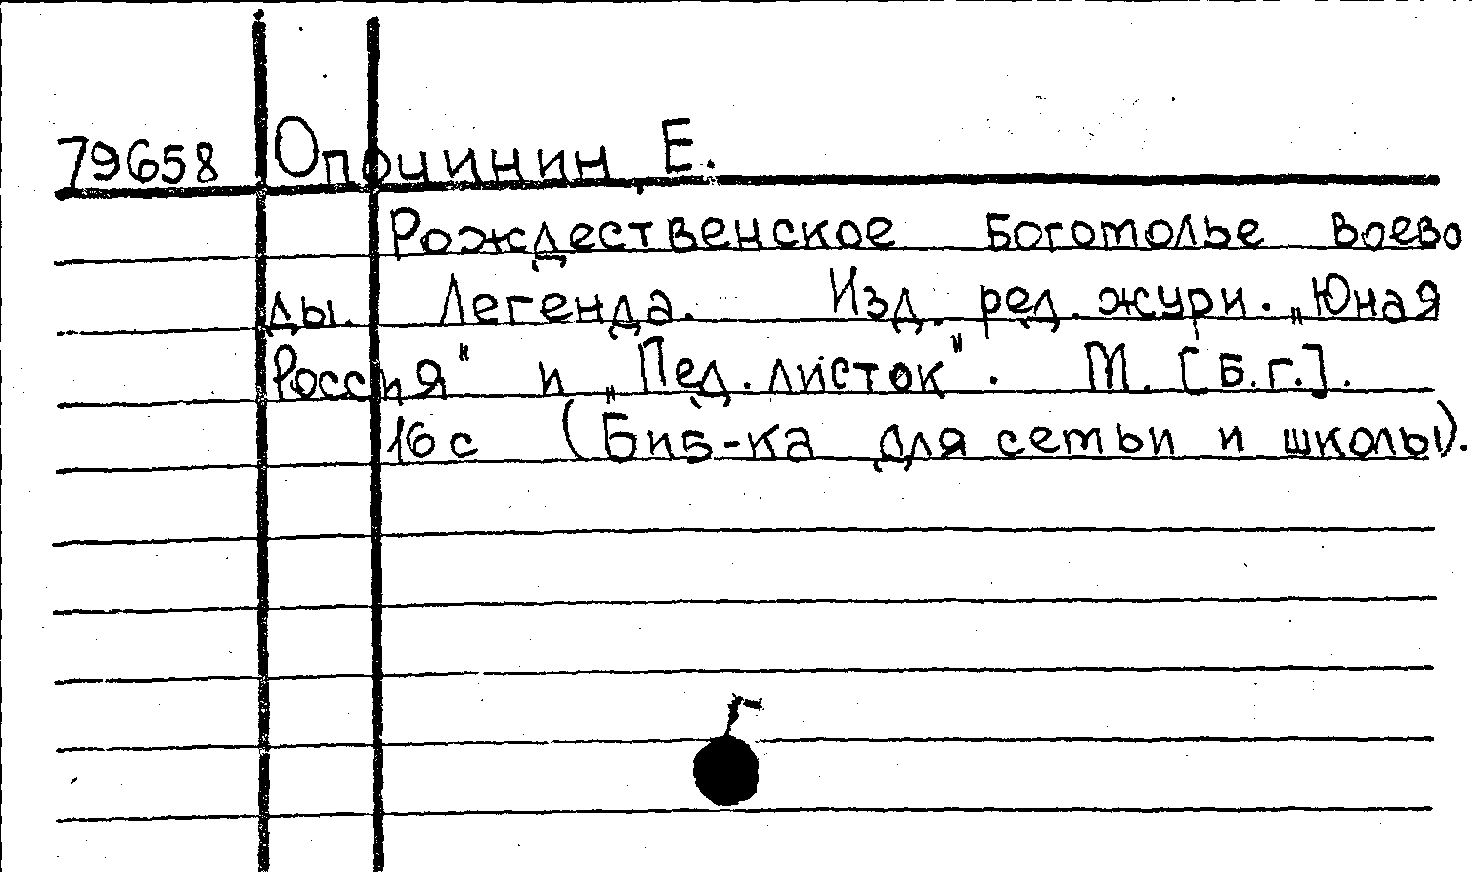 79658 Опочинин, Е.
Рождественское Боготолье воево
ды. Легенда. Изд. ред. журн. „Юная
Россия" и „Пед. листок". М. [Б.г.].
16 с (Биб-ка для сетьи и школы).